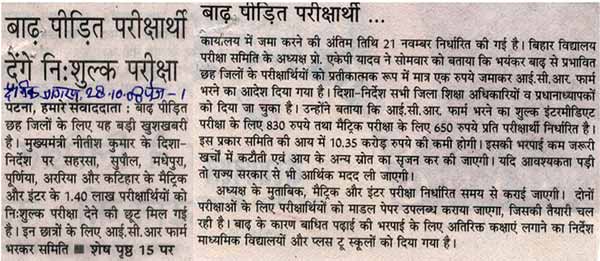 बाढ़ पीड़ित परीक्षार्थी
देंगे नि:शुल्क परीक्षा
दैनिक जागरण, 28.10.08 पेज-1
पटना, हमारे संवाददाता : बाढ़ पीड़ित
छह जिलों के लिए यह बड़ी खुशखबरी
है। मुख्यमंत्री नीतीश कुमार के दिशा-
निर्देश पर सहरसा, सुपौल, मधेपुरा,
पूर्णिया, अररिया और कटिहार के मैट्रिक
और इंटर के 1.40 लाख परीक्षार्थियों को
नि:शुल्क परीक्षा देने की छूट मिल गई
है। इन छात्रों के लिए आई.सी.आर. फार्म
भरकर समिति ■ शेष पृष्ठ 15 पर
बाढ़ पीड़ित परीक्षार्थी ...
कार्यालय में जमा करने की अंतिम तिथि 21 नवम्बर निर्धारित की गई है। बिहार विद्यालय
परीक्षा समिति के अध्यक्ष प्रो. एकेपी यादव ने सोमवार को बताया कि भयंकर बाढ़ से प्रभावित
छह जिलों के परीक्षार्थियों को प्रतीकात्मक रूप में मात्र एक रुपये जमाकर आई.सी.आर. फार्म
भरने का आदेश दिया गया है। दिशा-निर्देश सभी जिला शिक्षा अधिकारियों व प्रधानाध्यापकों
को दिया जा चुका है। उन्होंने बताया कि आई.सी.आर. फार्म भरने का शुल्क इंटरमीडिएट
परीक्षा के लिए 830 रुपये तथा मैट्रिक परीक्षा के लिए 650 रुपये प्रति परीक्षार्थी निर्धारित है।
इस प्रकार समिति की आय में 10.35 करोड़ रुपये की कमी होगी। इसकी भरपाई कम जरूरी
खर्चों में कटौती एवं आय के अन्य स्रोत का सृजन कर की जाएगी। यदि आवश्यकता पड़ी
तो राज्य सरकार से भी आर्थिक मदद ली जाएगी।
अध्यक्ष के मुताबिक, मैट्रिक और इंटर परीक्षा निर्धारित समय से कराई जाएगी। दोनों
परीक्षाओं के लिए परीक्षार्थियों को माडल पेपर उपलब्ध कराया जाएगा, जिसकी तैयारी चल
रही है। बाढ़ के कारण बाधित पढ़ाई की भरपाई के लिए अतिरिक्त कक्षाएं लगाने का निर्देश
माध्यमिक विद्यालयों और प्लस टू स्कूलों को दिया गया है।